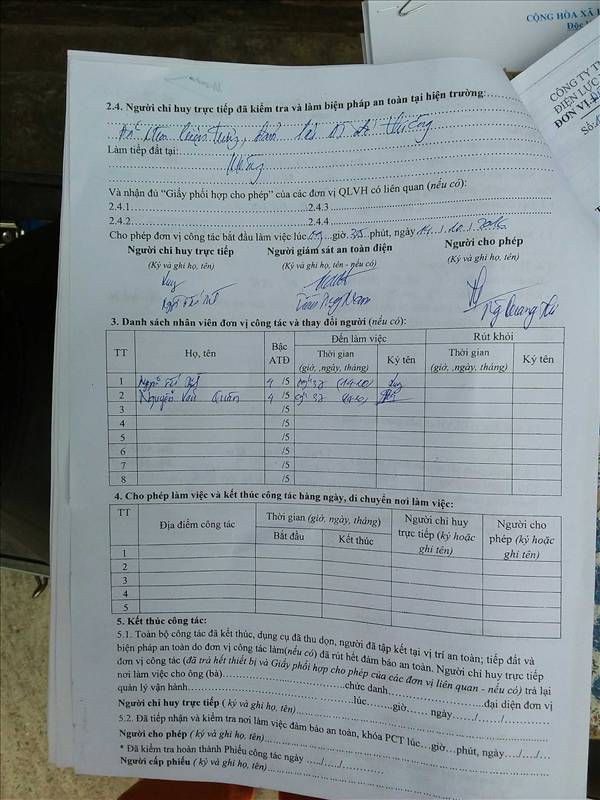 CỘNG HÒA XÃ
Độc
CÔNG TY T
ĐIỆN LỰC
ĐƠN VỊ
Số:
2.4. Người chỉ huy trực tiếp đã kiểm tra và làm biện pháp an toàn tại hiện trường:
Làm tiếp đất tại: Không
Và nhận đủ “Giấy phối hợp cho phép” của các đơn vị QLVH có liên quan (nếu có):
2.4.1 2.4.3
2.4.2 2.4.4
Cho phép đơn vị công tác bắt đầu làm việc lúc giờ 35 phút, ngày 10
Người chỉ huy trực tiếp Người giám sát an toàn điện Người cho phép
(Ký và ghi họ, tên) (Ký và ghi họ, tên - nếu có) (Ký và ghi họ, tên)
3. Danh sách nhân viên đơn vị công tác và thay đổi người (nếu có):
TT Họ, tên Bậc ATĐ Đến làm việc Rút khỏi
Thời gian (giờ, ,ngày, tháng) Ký tên Thời gian (giờ, ,ngày, tháng) Ký tên
1 4 /5
2 Nguyễn Văn Quân 4 /5
3 /5
4 /5
5 /5
6 /5
7 /5
8 /5
4. Cho phép làm việc và kết thúc công tác hàng ngày, di chuyển nơi làm việc:
TT Địa điểm công tác Thời gian (giờ, ngày, tháng) Người chỉ huy trực tiếp (ký hoặc ghi tên) Người cho phép (ký hoặc ghi tên)
Bắt đầu Kết thúc
1
2
3
4
5
5. Kết thúc công tác:
5.1. Toàn bộ công tác đã kết thúc, dụng cụ đã thu dọn, người đã tập kết tại vị trí an toàn; tiếp đất và
biện pháp an toàn do đơn vị công tác làm(nếu có) đã rút hết đảm bảo an toàn. Người chỉ huy trực tiếp
đơn vị công tác (đã trả hết thiết bị và Giấy phối hợp cho phép của các đơn vị liên quan - nếu có) trả lại
nơi làm việc cho ông (bà) chức danh đại diện đơn vị
quản lý vận hành lúc giờ ngày / /
Người chỉ huy trực tiếp ( ký và ghi họ, tên)
5.2. Đã tiếp nhận và kiểm tra nơi làm việc đảm bảo an toàn, khóa PCT lúc giờ phút, ngày / /
Người cho phép ( ký và ghi họ, tên)
* Đã kiểm tra hoàn thành Phiếu công tác ngày / /
Người cấp phiếu ( ký và ghi họ, tên)